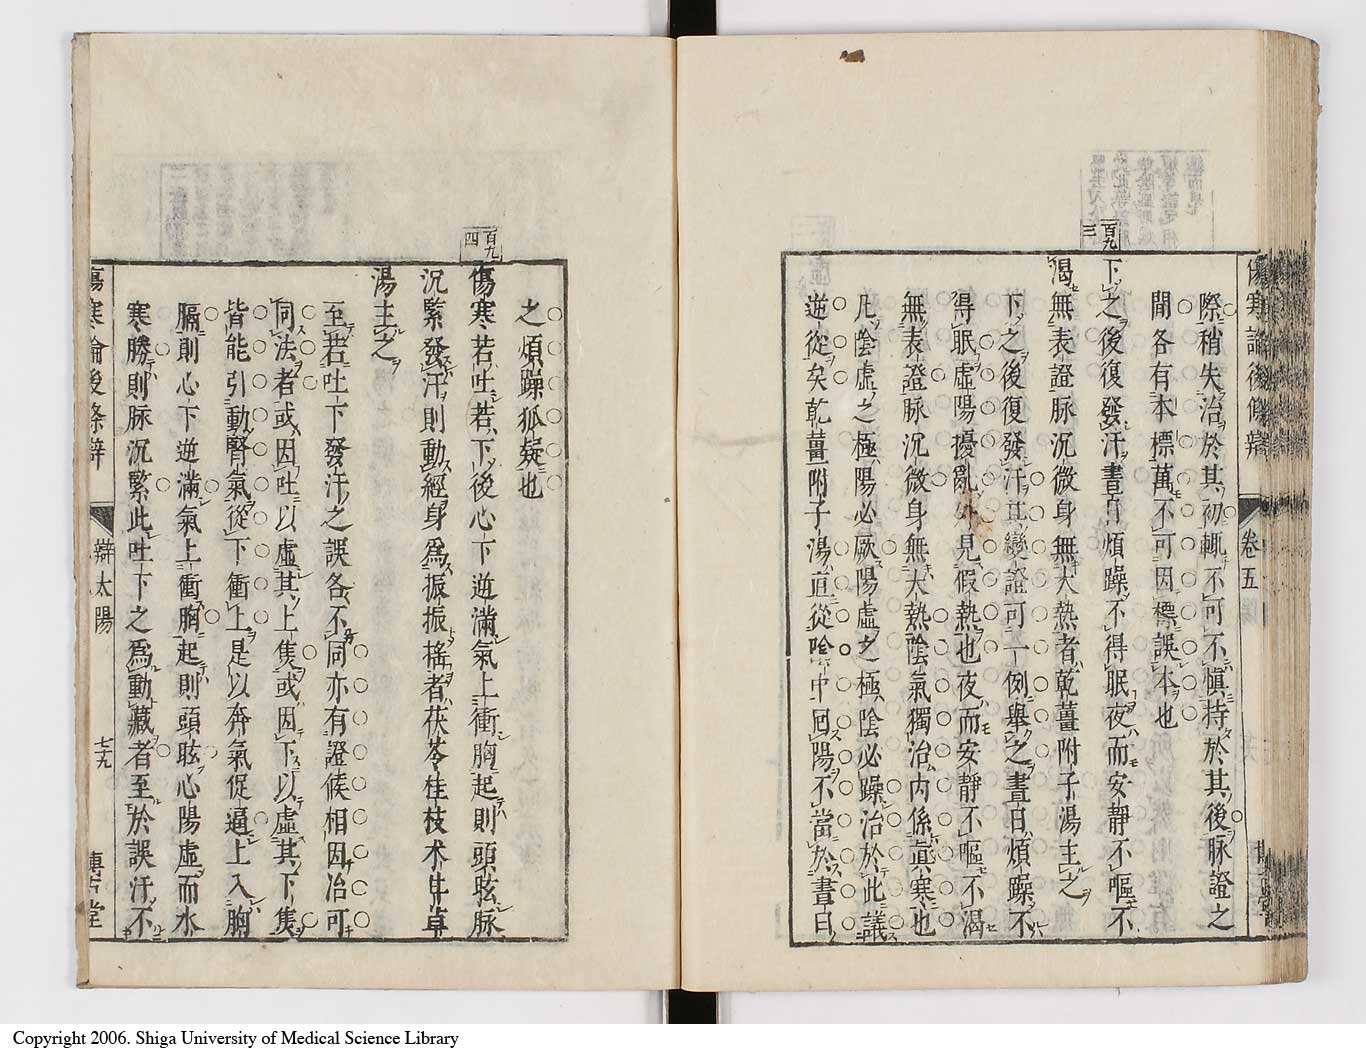 傷寒論後條辯
卷五
際稍失治於其初輒不可不愼持於其後脉證之
間各有本標萬不可因標誤本也
百九三
下之後復發汗晝日煩躁不得眠夜而安靜不嘔不
渴無表證脉沉微身無大熱者乾薑附子湯主之
下之後復發汗其變證可一例舉之晝日煩躁不
得眠虛陽擾亂外見假熱也夜而安靜不嘔不渴
無表證脉沉微身無大熱陰氣獨治內係眞寒也
凡陰虛之極陽必厥陽虛之極陰必躁治於此議
逆從矣乾薑附子湯直從陰中囘陽不當於晝日
之煩躁狐疑也
百九四
傷寒若吐若下後心下逆滿氣上衝胸起則頭眩脉
沉緊發汗則動經身爲振振搖者茯苓桂枝术甘草
湯主之
至若吐下發汗之誤各不同亦有證候相因治可
同法者或因吐以虛其上焦或因下以虛其下焦
皆能引動腎氣從下衝上是以奔氣促逼上入胸
膈則心下逆滿氣上衝胸起則頭眩心陽虛而水
寒勝則脉沉緊此吐下之爲動藏者至於誤汗不
傷寒論後條辯
辯太陽
七九
博古堂
Copyright 2006. Shiga University of Medical Science Library